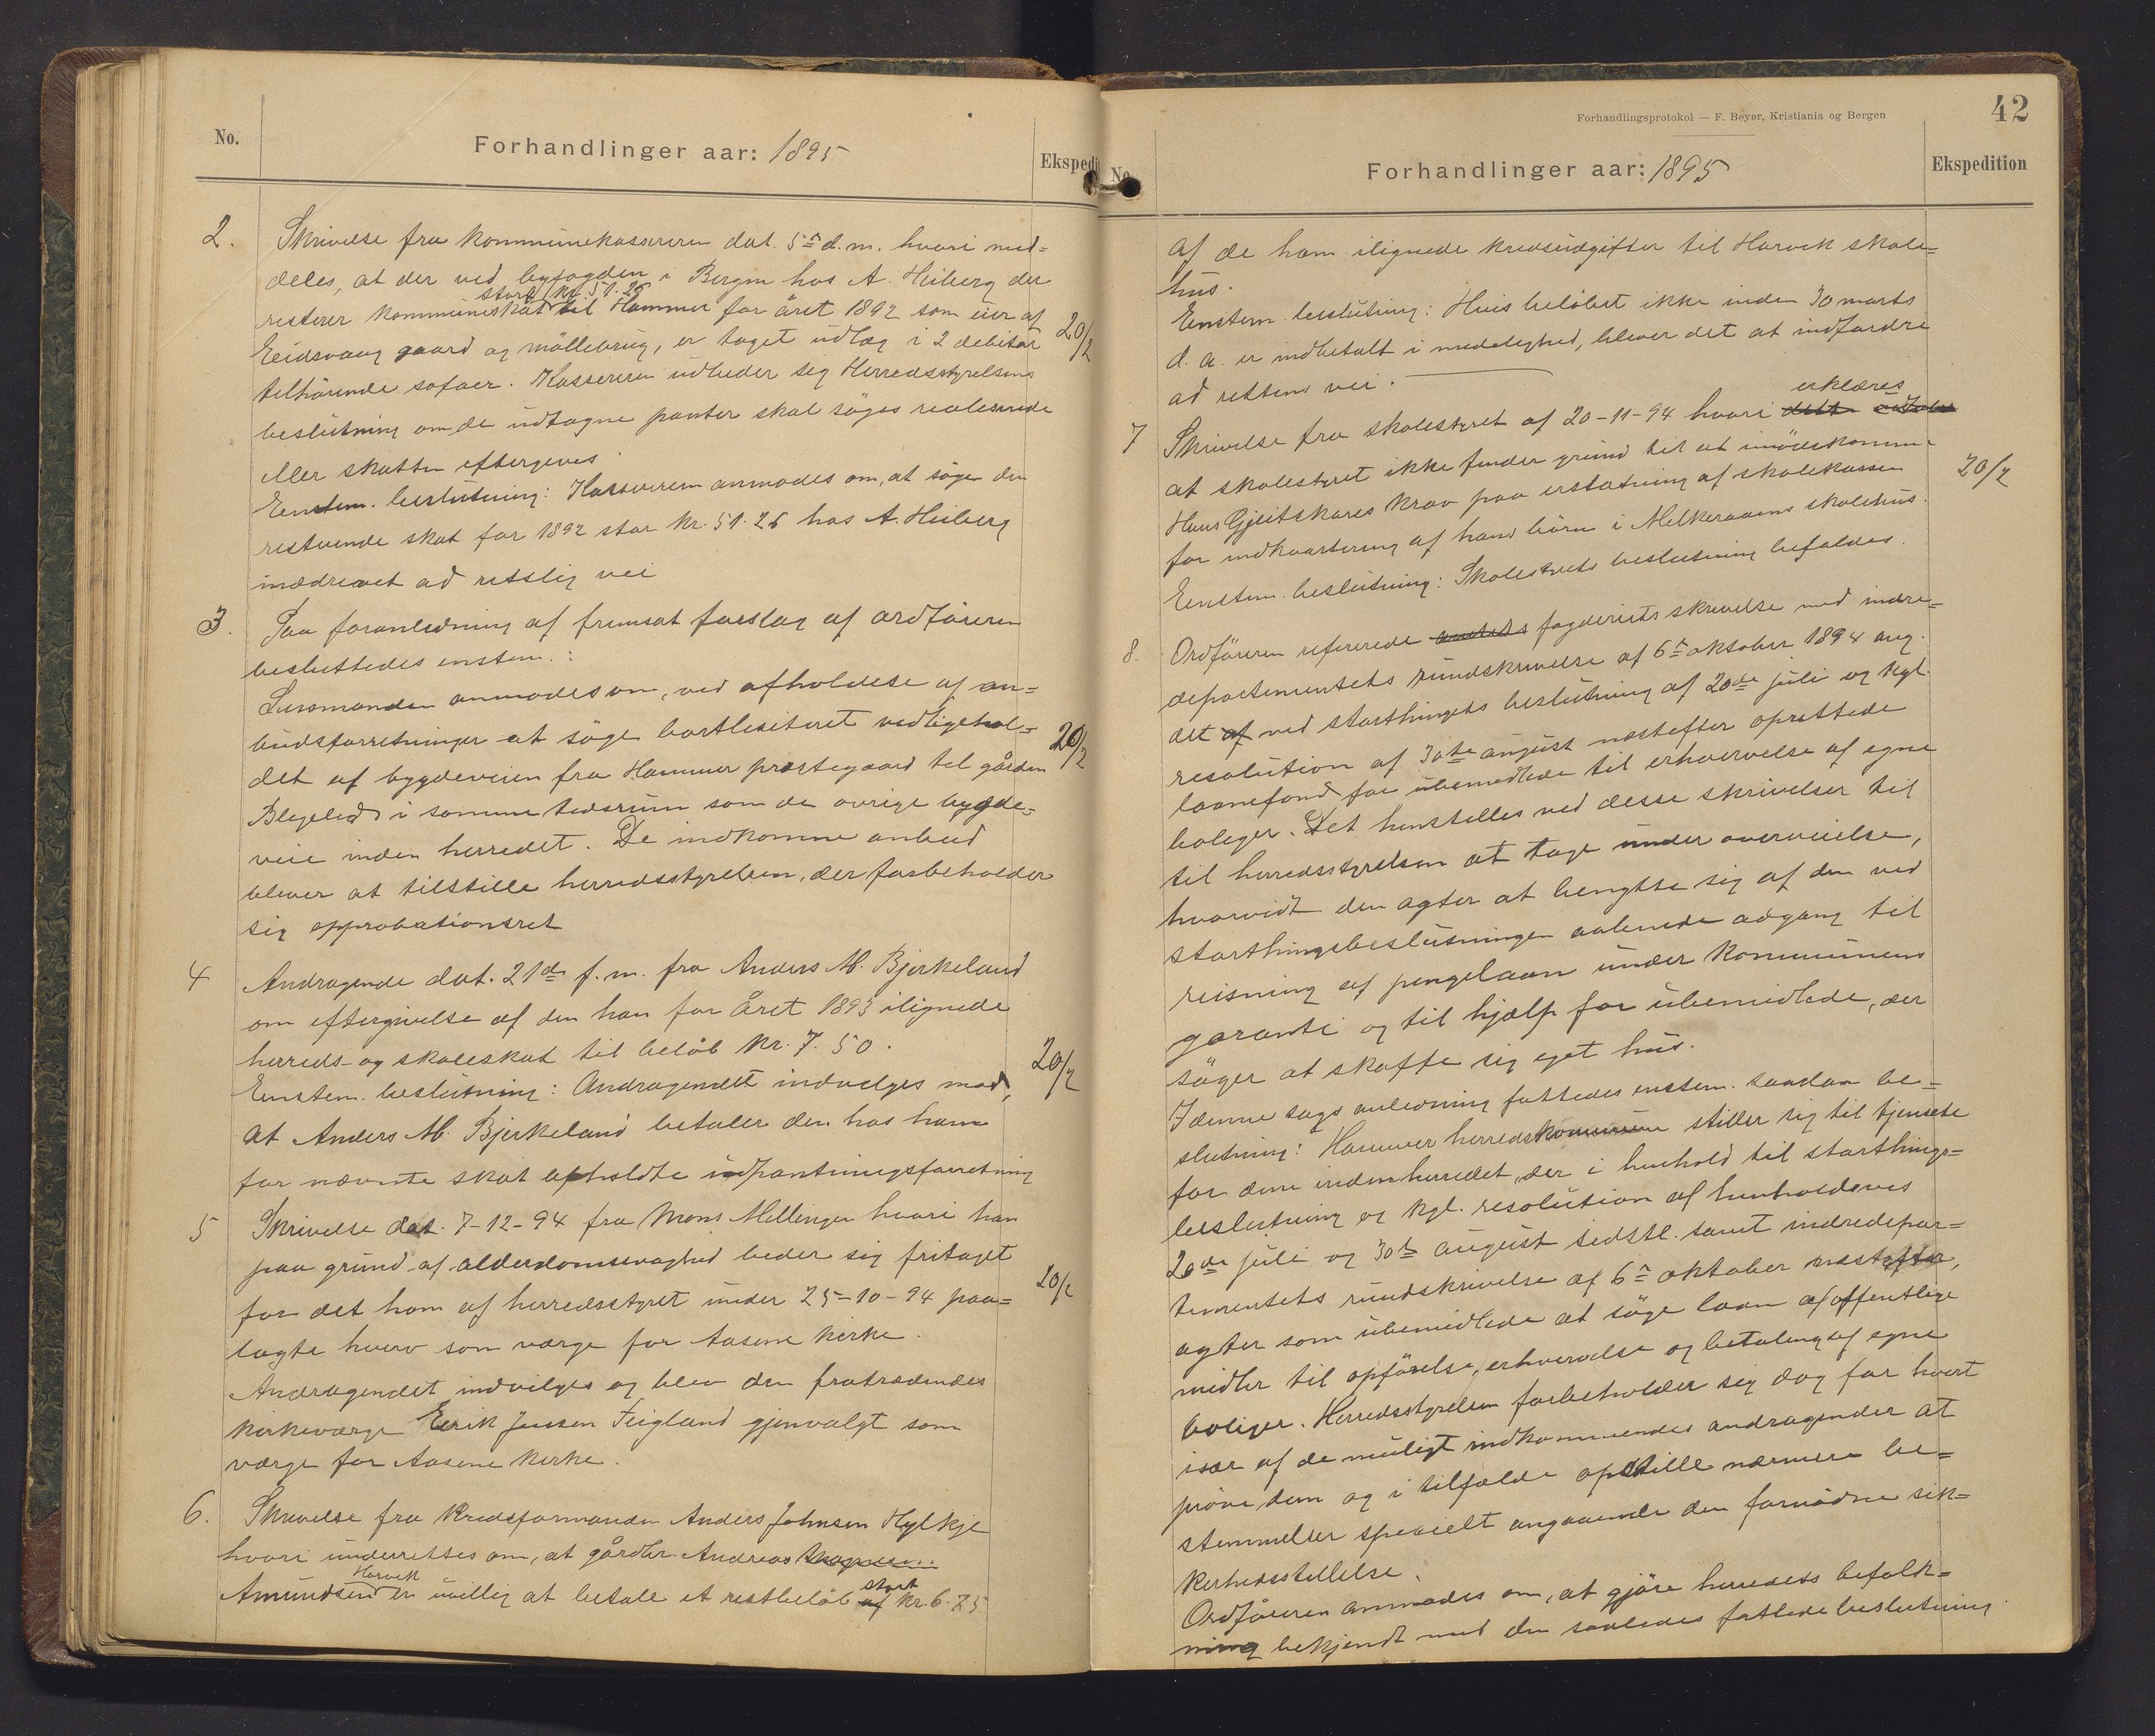 No.
Forhandlinger aar: 1895
Ekspedi
2. Skrivelse fra kommunekassereren dat. 5te d.m. hvori med=
deles, at der ved byfogden i Bergen hos A. Heiberg der
stor kr. 51.26
resterer kommuneskat til Hammer for året 1892 som eier af
Eidsvaag gaard og möllebrug, er taget udlæg i 2 debitor
20/2
tilhörende sofaer. Kassereren udbeder sig Herredsstyrelsens
beslutning om de udtagne panter skal söges realiserede
eller skatten eftergives.
Enstem. beslutning: Kassereren anmodes om, at söge den
resterende skat for 1892 stor kr. 51.26 hos A. Heiberg
inddrevet ad retslig vei
3. Paa foranledning af fremsat forslag af ordföreren
besluttedes enstem.:
Lensmanden anmodes om, ved afholdelse af an=
budsforretninger at söge bortlisiteret vedligehol=
20/2
det af bygdeveien fra Hammer prestegaard til gården
Blegelid i samme tidsrum som de övrige bygde=
veie inden herredet. De indkomne anbud
bliver at tilstille herredsstyrelsen, der forbeholder
sig approbationsret
4 Andragende dat. 21de f.m. fra Anders M. Bjerkeland
om eftergivelse af den han for Året 1893 ilignede
herreds- og skoleskat til belöb kr. 7.50.
20/2
Enstem. beslutning: Andragendet indvelges mod,
at Anders M. Bjerkeland betaler den hos ham
for nævnte skat afholdte udpantningsforretning
5 Skrivelse dat. 7-12-94 fra Mons Mellingen hvori han
paa grund af alderdomssvaghed beder sig fritaget
20/2
for det ham af herredsstyret under 25-10-94 paa=
lagte hverv som værge for Aasene kirke.
Andragendet indvilges og blev den fratrædendes
kirkeværge Eerik Jensen Teigland gjenvalgt som
værge for Aasene kirke.
6. Skrivelse fra Kredsformanden Anders Johnsen Hylkje
hvori underrettes om, at gårdbr. Andreas
Horvik stort
Amundsen er uvillig at betale et restbelöb af kr. 6.75
Forhandlingsprotokol — F. Beyer, Kristiania og Bergen
42
No.
Forhandlinger aar: 1895
Ekspedition
af de ham ilignede kredsudgifter til Horvik skole=
hus.
Enstem. beslutning: Hvis belöbet ikke inden 30 marts
d.a. er indbetalt i mindelighed, bliver det at indfordre
ad rettens vei.
erklæres
7 Skrivelse fra skolestyret af 20-11-94 hvori dette
at skolestyret ikke finder grund til at imödekomme
20/2
Hans Gjeitskares krav paa erstatning af skolekassen
for indkvartering af hans börn i Melkeraaens skolehus.
Enstem. beslutning: Skolestyrets beslutning befaldes.
8. Ordföreren refererede fogderiets skrivelse med indre=
departementets rundskrivelse af 6te oktober 1894 ang.
det af ved storthingets beslutning af 20de juli og kgl.
resolution af 30te august næstefter oprettede
laanefond for ubemidlede til erhvervelse af egne
boliger. Det henstilles ved desse skrivelser til
til herredsstyrelsen at tage under overveielse,
hvorvidt den agter at benytte sig af den ved
storthingsbeslutningen aabnede adgang til
reisning af pengelaan under kommunens
garanti og til hjælp for ubemidlede, der
söger at skaffe sig eget hus.
I denne sags anledning fattedes enstem. saadan be=
slutning: Hammer herredskommune stiller sig til tjeneste
for dem inden herredet, der i henhold til storthings=
beslutning og kgl. resolution af henholdsvis
20de juli og 30te august sidstl. samt indredepar=
tementets rundskrivelse af 6te oktober næstefter,
agter som ubemidlede at söge laan af offentlige
midler til opförelse, erhvervelse og betaling af egne
boliger. Herredsstyrelsen forbeholder sig dog for hvert
især af de muligt indkommendes andragender at
pröve dem og i tilfælde opstille nærmere be=
stemmelser specielt angaaende den fornödne sik=
kerhedsstillelse.
Ordföreren anmodes om, at gjöre herredets befolk=
ning bekjendt med den saaledes fattede beslutning